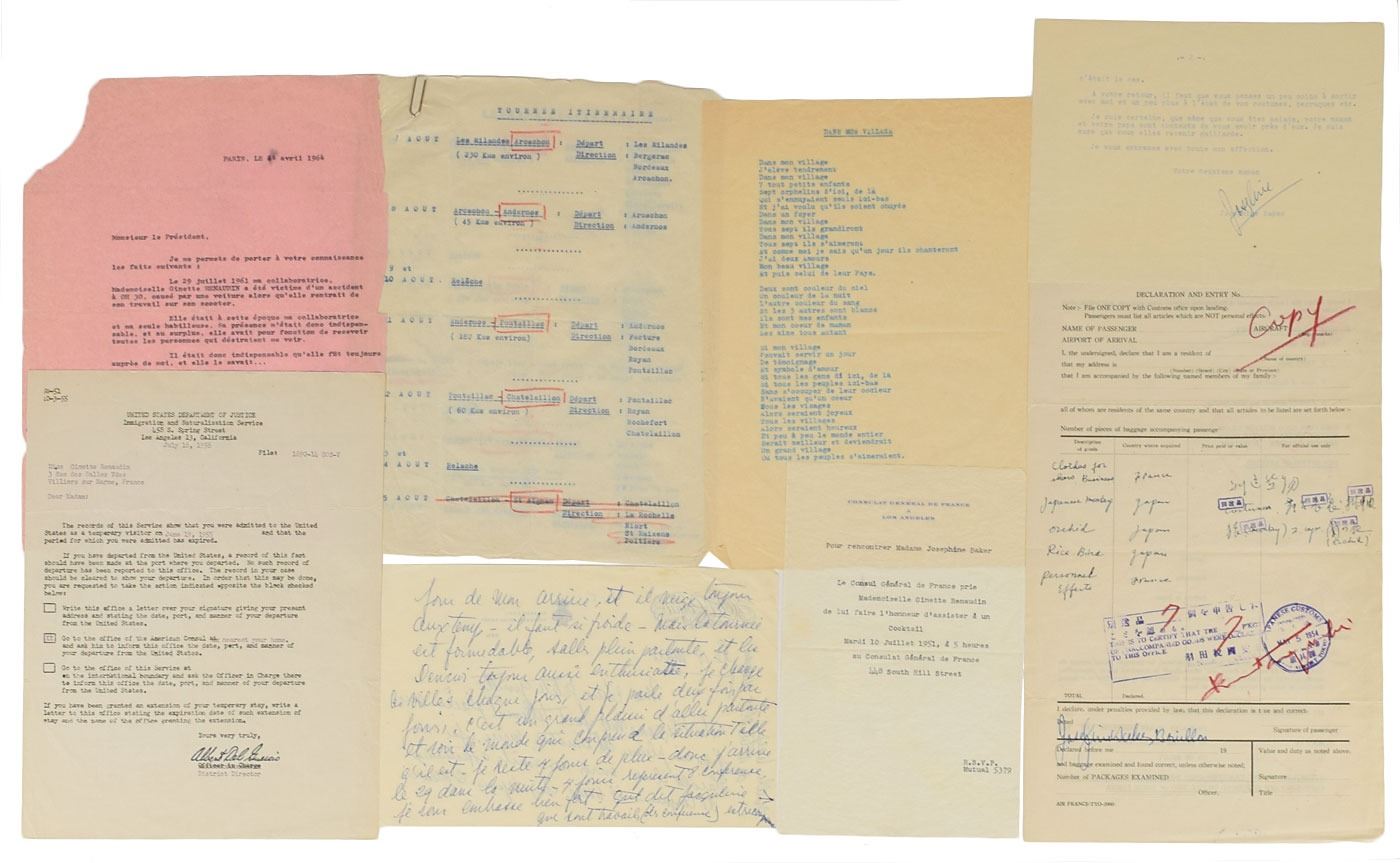 PARIS, LE avril 1964
Monsieur le Président,
Je me permets de porter à votre connaissance
les faits suivants :
Le 29 juillet 1961 ma collaboratrice,
Mademoiselle Ginette RENAUDIN a été victime d'un accident
à OH 30, causé par une voiture alors qu'elle rentrait de
son travail sur son scooter.
Elle était à cette époque ma collaboratrice
et ma seule habilleuse. Sa présence m'était donc indispen-
sable, et au surplus, elle avait pour fonction de recevoir
toutes les personnes qui désiraient me voir.
Il était donc indispensable qu'elle fût toujours
auprès de moi, et elle le savait...
UNITED STATES DEPARTMENT OF JUSTICE
Immigration and Naturalization Service
458 S. Spring Street
Los Angeles 13, California
File:
Ginette Renaudin
Villiers sur Marne, France
Dear Madam:
The records of this Service show that you were admitted to the United
States as a temporary visitor on and that the
period for which you were admitted has expired.
If you have departed from the United States, a record of this fact
should have been made at the port where you departed. No such record of
departure has been reported to this office. The record in your case
should be cleared to show your departure. In order that this may be done,
you are requested to take the action indicated opposite the block checked
below:
Write this office a letter over your signature giving your present
address and stating the date, port, and manner of your departure
from the United States.
Go to the office of the American Consul nearest your home.
and ask him to inform this office the date, port, and manner of
your departure from the United States.
Go to the office of this Service at
on the international boundary and ask the Officer in Charge there
to inform this office the date, port, and manner of your departure
from the United States.
If you have been granted an extension of your temporary stay, write a
letter to this office stating the expiration date of such extension of
stay and the name of the office granting the extension.
Very truly,
Officer in Charge
District Director
TOURNEE ITINERAIRE
7 AOUT Les Milandes Arcachon : Départ : Les Milandes
( 230 Kms environ ) Direction : Bergerac
Bordeaux
Arcachon.
8 AOUT Arcachon - Andernos : Départ : Arcachon
( 45 Kms environ ) Direction : Andernos
9 et
10 AOUT Relâche
AOUT Andernos - Pontaillac : Départ : Andernos
( 187 Kms environ) Direction : Facture
Bordeaux
Royan
Pontaillac
AOUT Pontaillac - Chatelaillon Départ : Pontaillac
( 60 Kms environ ) Direction : Royan
Rochefort
Chatelaillon
et
AOUT Relache
AOUT Chatelaillon - St Aignan Départ : Chatelaillon
Direction : La Rochelle
Niort
St Maixent
Poitiers
DANS MON VILLAGE
Dans mon village
J'élève tendrement
Dans mon village
7 tout petits enfants
Sept orphelins d'ici, de là
Qui s'ennuyaient seuls ici-bas
Et j'ai voulu qu'ils soient choyés
Dans un foyer
Dans mon village
Tous sept ils grandiront
Dans mon village
Tous sept ils s'aimeront
Et comme moi je sais qu'un jour ils chanteront
J'ai deux Amours
Mon beau village
Et puis celui de leur Pays.
Deux sont couleur du ciel
Un couleur de la nuit
L'autre couleur du sang
Et les 3 autres sont blancs
Ils sont mes enfants
Et mon coeur de maman
Les aime tout autant
Si mon village
Pouvait servir un jour
De témoignage
Et symbole d'amour
Si tous les gens di ici, de là
Si tous les peuples ici-bas
Sans s'occuper de leur couleur
N'avaient qu'un coeur
Tous les visages
Alors seraient joyeux
Tous les villages
Alors seraient heureux
Et peu à peu le monde entier
Serait meilleur et deviendrait
Un grand village
Où tous les peuples s'aimeraient.
jour de mon arrivée, et il neige toujours
il fait si froid - mais la tournée
est formidable, salles plein partout, et les
toujours aussi enthusiaste, je change
les villes chaque jours, et je parle deux fois par
jours, c'est un grand plaisir d'aller partout
et voir le monde qui comprend la situation telle
qu'il est - je reste 4 jours de plus - donc j'arrive
le 29 dans la nuit - 4 jours represent 8 conference
je vous embrasse bien fort -
CONSULAT GÉNÉRAL DE FRANCE
À
LOS ANGELES
Pour rencontrer Madame Josephine Baker
Le Consul Général de France prie
Mademoiselle Ginette Renaudin
de lui faire l'honneur d'assister à un
Cocktail
Mardi 10 Juillet 1951, à 5 heures
au Consulat Général de France
448 South Hill Street
R.S.V.P.
Mutual 5379
- 2 -
c'était le cas.
A votre retour, il faut que vous pensez un peu moins à sortir
avec moi et un peu plus à l'état de vos costumes, perruques etc.
Je vous embrasse avec toute mon affection.
Votre deuxième maman
DECLARATION AND ENTRY No.
Note :- File ONE COPY with Customs office upon landing.
Passengers must list all articles which are NOT personal effects.
Copy
NAME OF PASSENGER AIRCRAFT
AIRPORT OF ARRIVAL
I, the undersigned, declare that I am a resident of
(Name of country)
that my address is
(Number) (Street) (City) (State or Province)
that I am accompanied by the following named members of my family :-
all of whom are residents of the same country and that all articles to be listed are set forth below :-
Number of pieces of baggage accompanying passenger
Description of goods Country where acquired Price paid or value For official use only
Clothes for
show Business France
Japanese monkey Japan
orchid Japan
Rice Bird Japan
personnel
Effects France
THIS IS TO CERTIFY THAT THE
UNACCOMPANIED GOODS WERE
TO THIS OFFICE
JAPANESE CUSTOMS
1954
TOTAL Declared.
I declare, under penalties provided by law, that this declaration is true and correct-
Signed
Signature of passenger
Declared before me 19 Value and duty as noted above.
and baggage examined and found correct, unless otherwise noted;
Number of PACKAGES EXAMINED Signature
Officer. Title
AIR FRANCE/TYO-2000